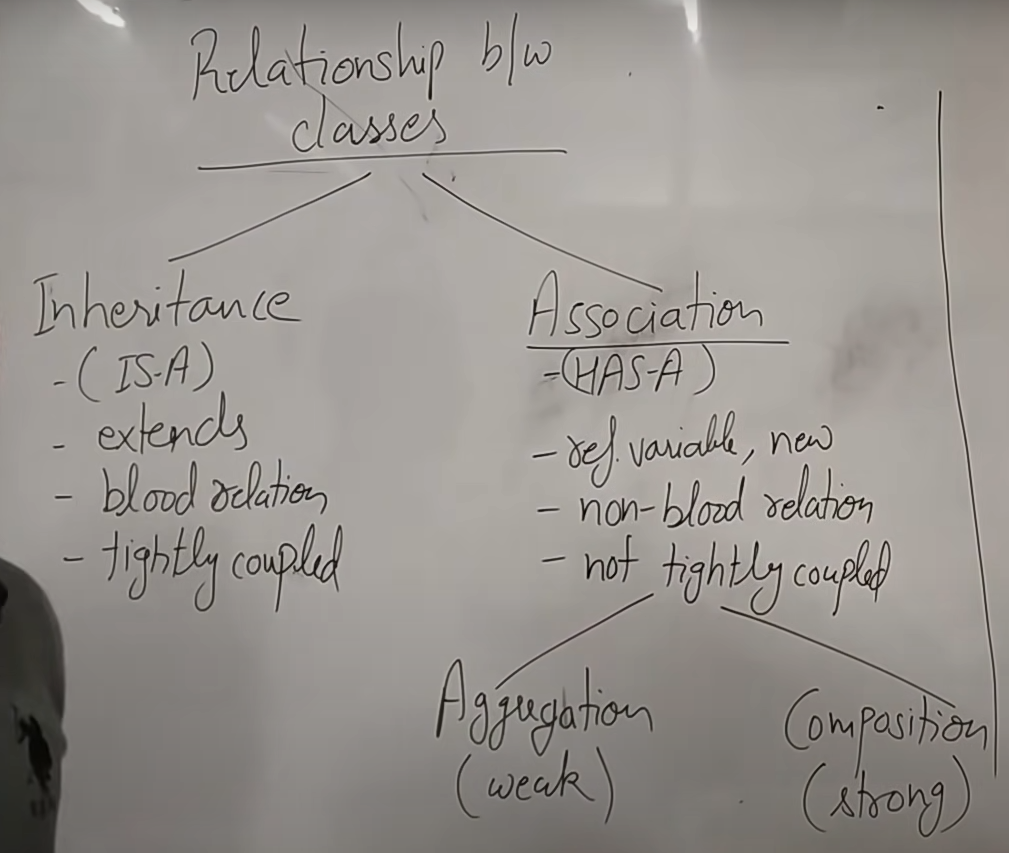 Relationship b/w
classes
Inheritance
- (IS-A)
- extends
- blood relation
- tightly coupled
Association
-(HAS-A)
- ref. variable, new
- non-blood relation
- not tightly coupled
Aggregation
(weak)
Composition
(strong)